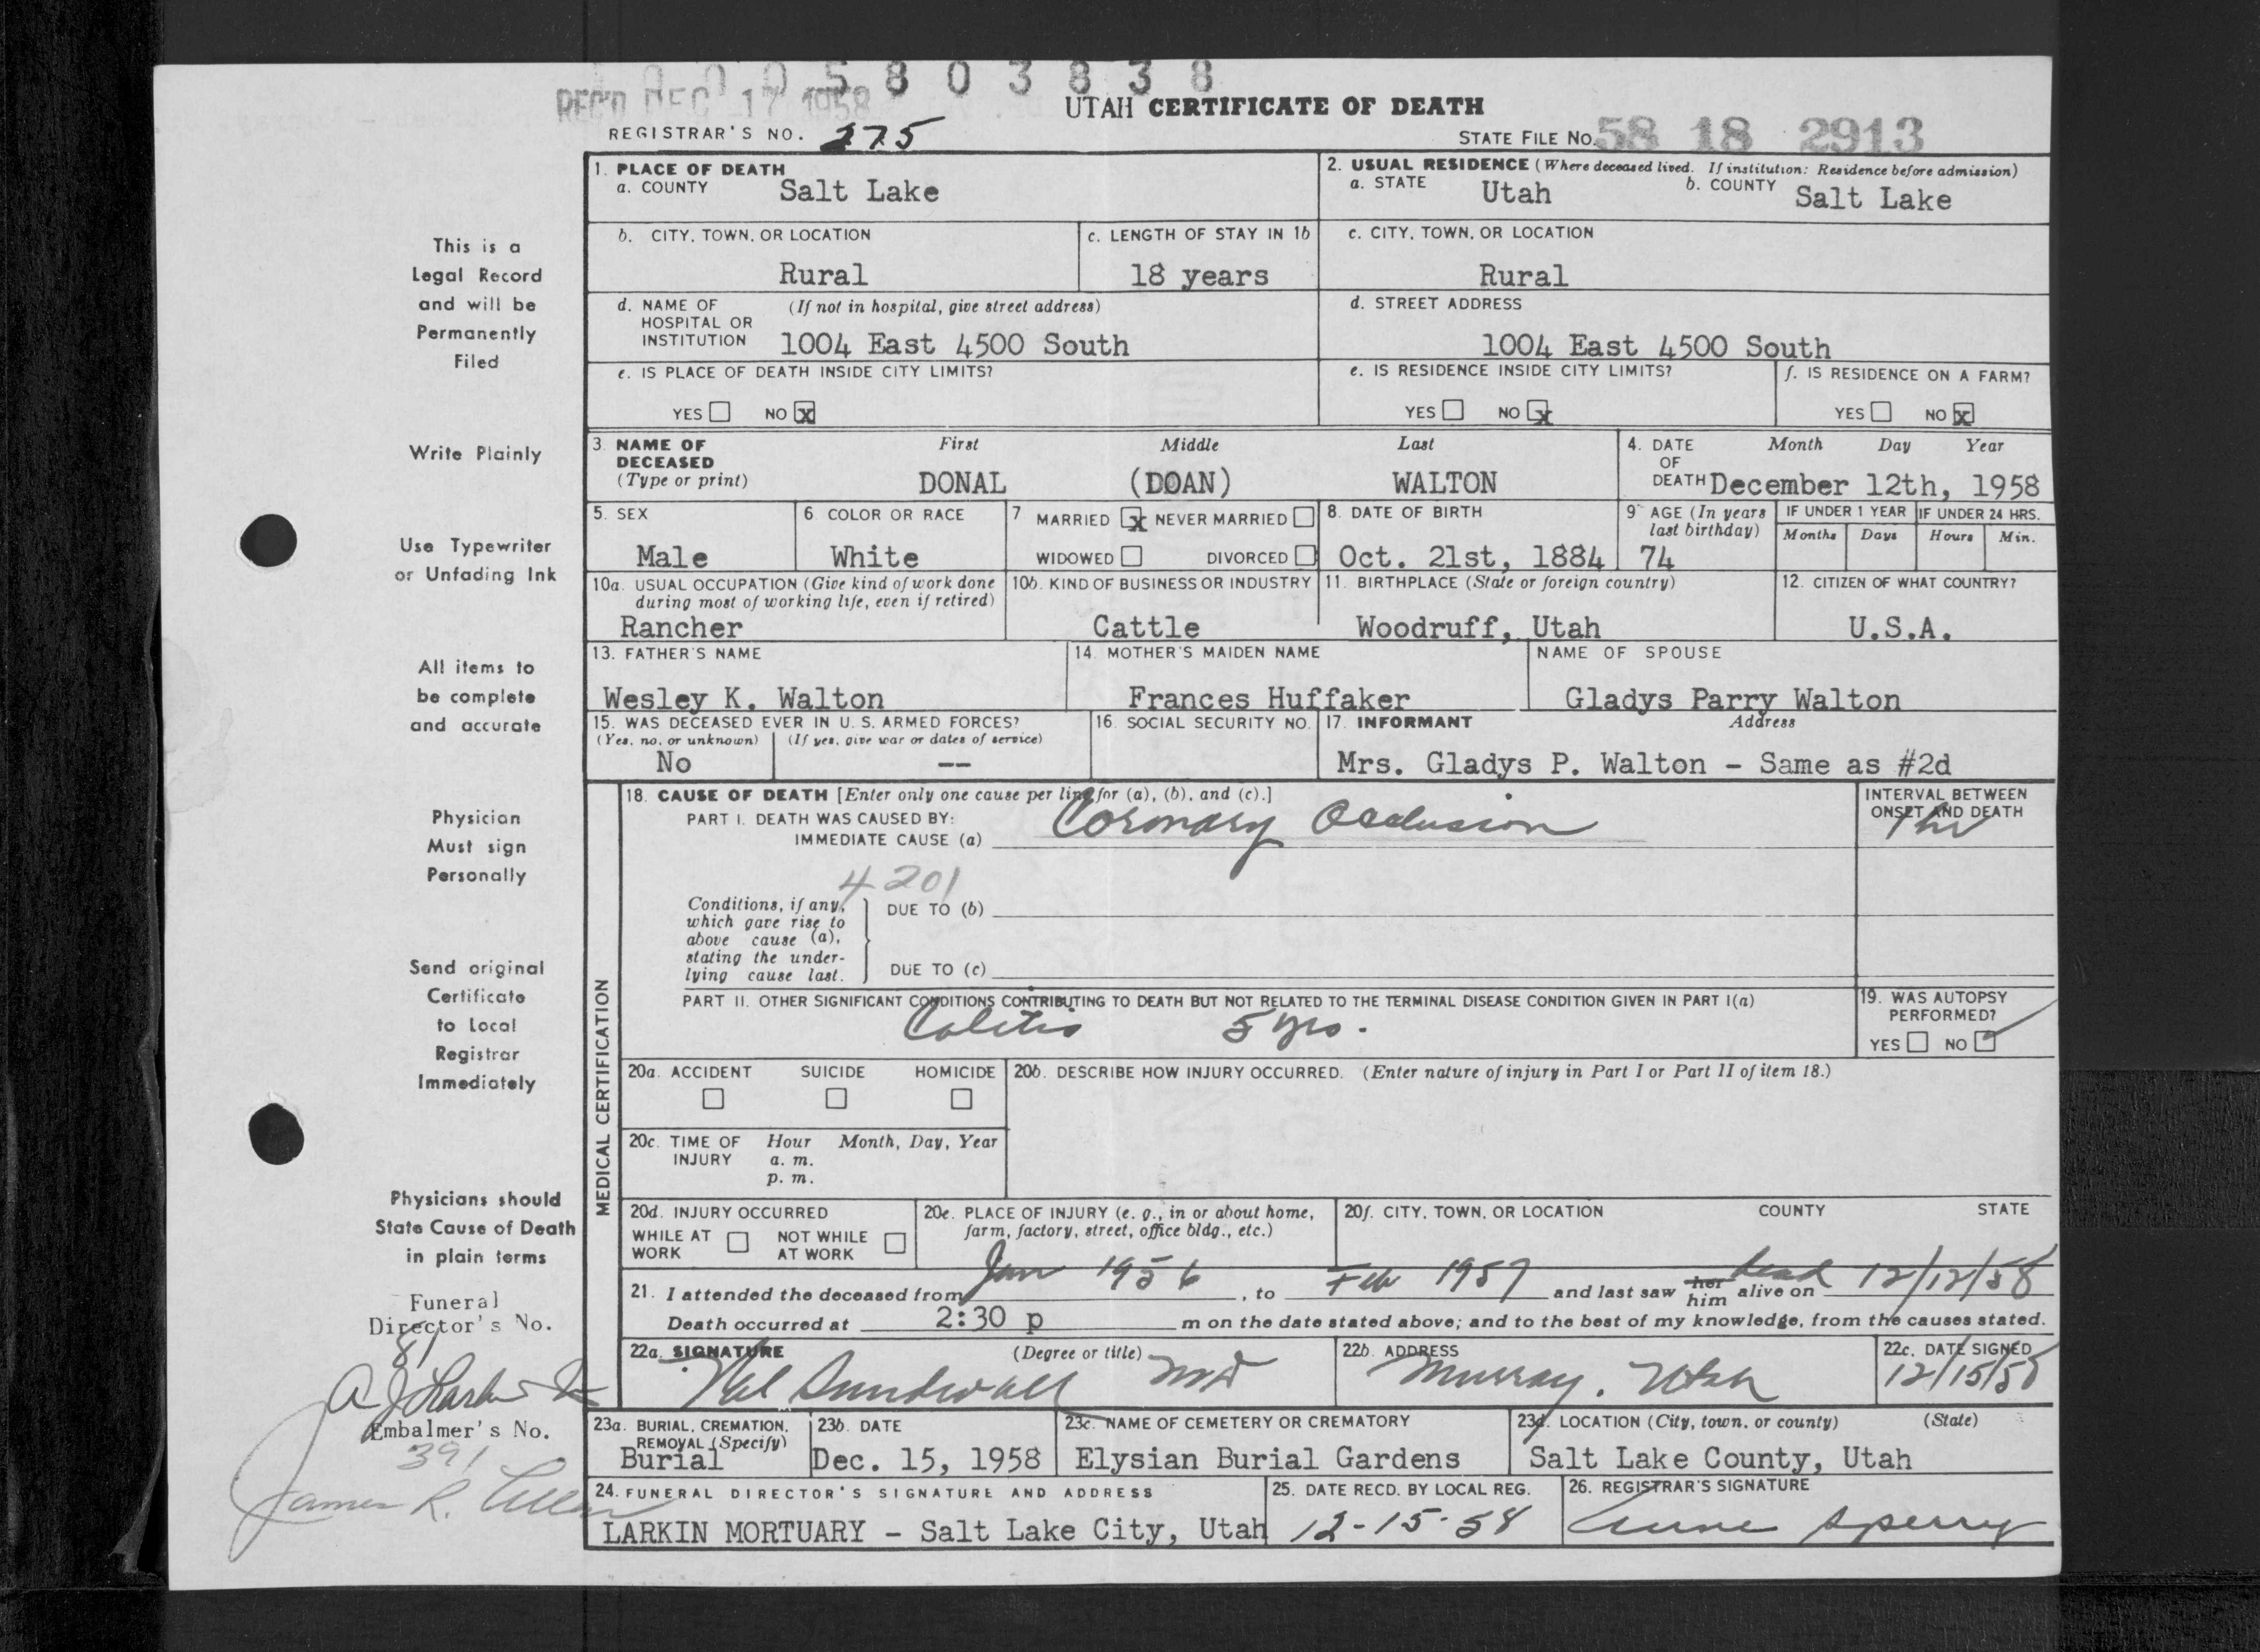 0 0 0 5 8 0 3 8 3 8
REC'D DEC 17 1958
UTAH CERTIFICATE OF DEATH
REGISTRAR'S NO. 275
STATE FILE NO. 58 18 2913
1. PLACE OF DEATH
a. COUNTY Salt Lake
2. USUAL RESIDENCE (Where deceased lived. If institution: Residence before admission)
a. STATE Utah b. COUNTY Salt Lake
b. CITY, TOWN, OR LOCATION
Rural
c. LENGTH OF STAY IN 1b
18 years
c. CITY, TOWN, OR LOCATION
Rural
d. NAME OF HOSPITAL OR INSTITUTION (If not in hospital, give street address)
1004 East 4500 South
d. STREET ADDRESS
1004 East 4500 South
e. IS PLACE OF DEATH INSIDE CITY LIMITS?
YES NO X
e. IS RESIDENCE INSIDE CITY LIMITS?
YES NO X
f. IS RESIDENCE ON A FARM?
YES NO X
3. NAME OF DECEASED (Type or print)
First Middle Last
DONAL (DOAN) WALTON
4. DATE OF DEATH Month Day Year
December 12th, 1958
5. SEX
Male
6. COLOR OR RACE
White
7 MARRIED X NEVER MARRIED
WIDOWED DIVORCED
8. DATE OF BIRTH
Oct. 21st, 1884
9. AGE (In years last birthday)
74
IF UNDER 1 YEAR
Months Days
IF UNDER 24 HRS.
Hours Min.
10a. USUAL OCCUPATION (Give kind of work done during most of working life, even if retired)
Rancher
10b. KIND OF BUSINESS OR INDUSTRY
Cattle
11. BIRTHPLACE (State or foreign country)
Woodruff, Utah
12. CITIZEN OF WHAT COUNTRY?
U.S.A.
13. FATHER'S NAME
Wesley K. Walton
14. MOTHER'S MAIDEN NAME
Frances Huffaker
NAME OF SPOUSE
Gladys Parry Walton
15. WAS DECEASED EVER IN U. S. ARMED FORCES?
(Yes, no, or unknown) (If yes, give war or dates of service)
No --
16. SOCIAL SECURITY NO.
17. INFORMANT Address
Mrs. Gladys P. Walton - Same as #2d
MEDICAL CERTIFICATION
18. CAUSE OF DEATH [Enter only one cause per line for (a), (b), and (c).]
PART I. DEATH WAS CAUSED BY:
IMMEDIATE CAUSE (a) Coronary Occlusion
INTERVAL BETWEEN ONSET AND DEATH
1 hr
4201
Conditions, if any, which gave rise to above cause (a), stating the underlying cause last.
DUE TO (b)
DUE TO (c)
PART II. OTHER SIGNIFICANT CONDITIONS CONTRIBUTING TO DEATH BUT NOT RELATED TO THE TERMINAL DISEASE CONDITION GIVEN IN PART I(a)
Colitis 5 yrs.
19. WAS AUTOPSY PERFORMED?
YES NO
20a. ACCIDENT SUICIDE HOMICIDE
20b. DESCRIBE HOW INJURY OCCURRED. (Enter nature of injury in Part I or Part II of item 18.)
20c. TIME OF INJURY Hour Month, Day, Year
a. m.
p. m.
20d. INJURY OCCURRED
WHILE AT WORK NOT WHILE AT WORK
20e. PLACE OF INJURY (e. g., in or about home, farm, factory, street, office bldg., etc.)
20f. CITY, TOWN, OR LOCATION COUNTY STATE
21. I attended the deceased from Jan 1956, to Feb 1957 and last saw her him alive on dead 12/12/58
Death occurred at 2:30 p m on the date stated above; and to the best of my knowledge, from the causes stated.
22a. SIGNATURE (Degree or title)
Val Sundwall MD
22b. ADDRESS
Murray, Utah
22c. DATE SIGNED
12/15/58
23a. BURIAL, CREMATION, REMOVAL (Specify)
Burial
23b. DATE
Dec. 15, 1958
23c. NAME OF CEMETERY OR CREMATORY
Elysian Burial Gardens
23d. LOCATION (City, town, or county) (State)
Salt Lake County, Utah
24. FUNERAL DIRECTOR'S SIGNATURE AND ADDRESS
LARKIN MORTUARY - Salt Lake City, Utah
25. DATE RECD. BY LOCAL REG.
12-15-58
26. REGISTRAR'S SIGNATURE
Anne Sperry
This is a
Legal Record
and will be
Permanently
Filed
Write Plainly
Use Typewriter
or Unfading Ink
All items to
be complete
and accurate
Physician
Must sign
Personally
Send original
Certificate
to Local
Registrar
Immediately
Physicians should
State Cause of Death
in plain terms
Funeral
Director's No.
81
Embalmer's No.
391
James R.